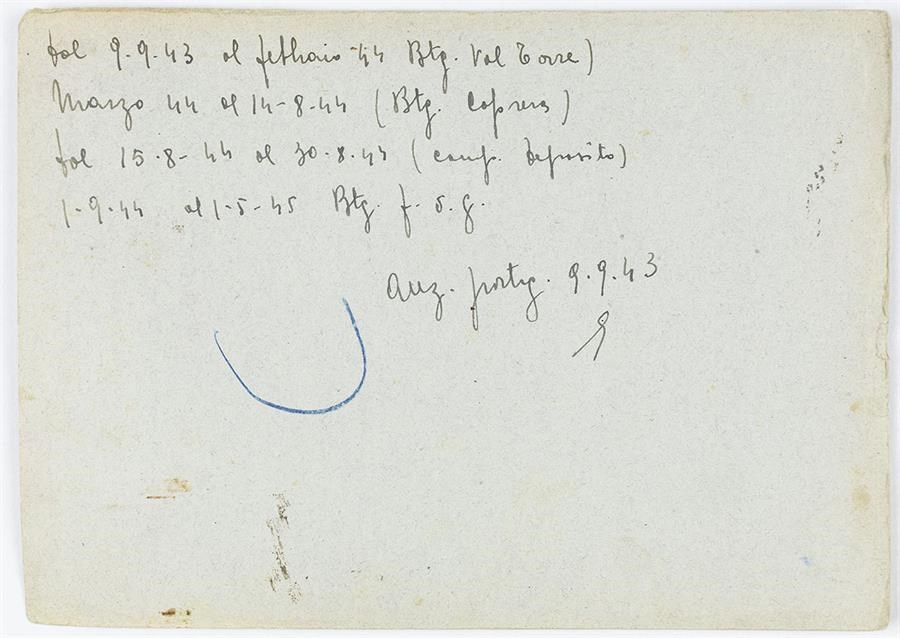 dal 9.9.43 al febbraio 44 Btg. Val Torre)
Marzo 44 al 14-8-44 (Btg. Caprera)
dal 15-8-44 al 30-8-44 (comp. deposito)
1-9-44 al 1-5-45 Btg. f. s. g.
Anz. partig. 9.9.43